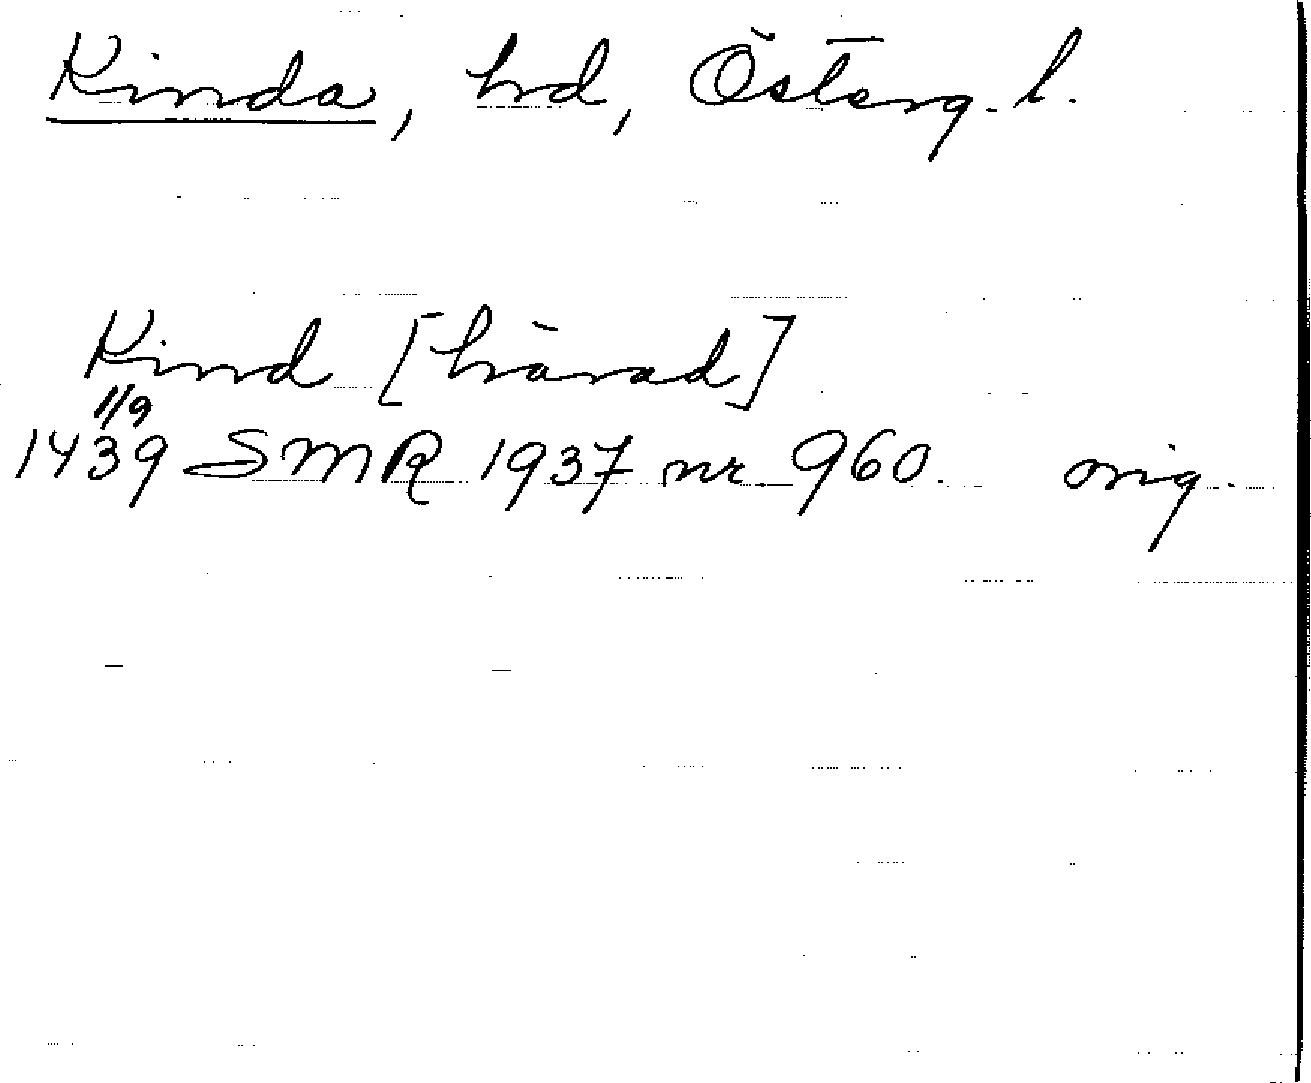 Kinda, hd, Österg. l.
Kind [härad]
1/9
1439 SMR 1937 nr. 960. orig.